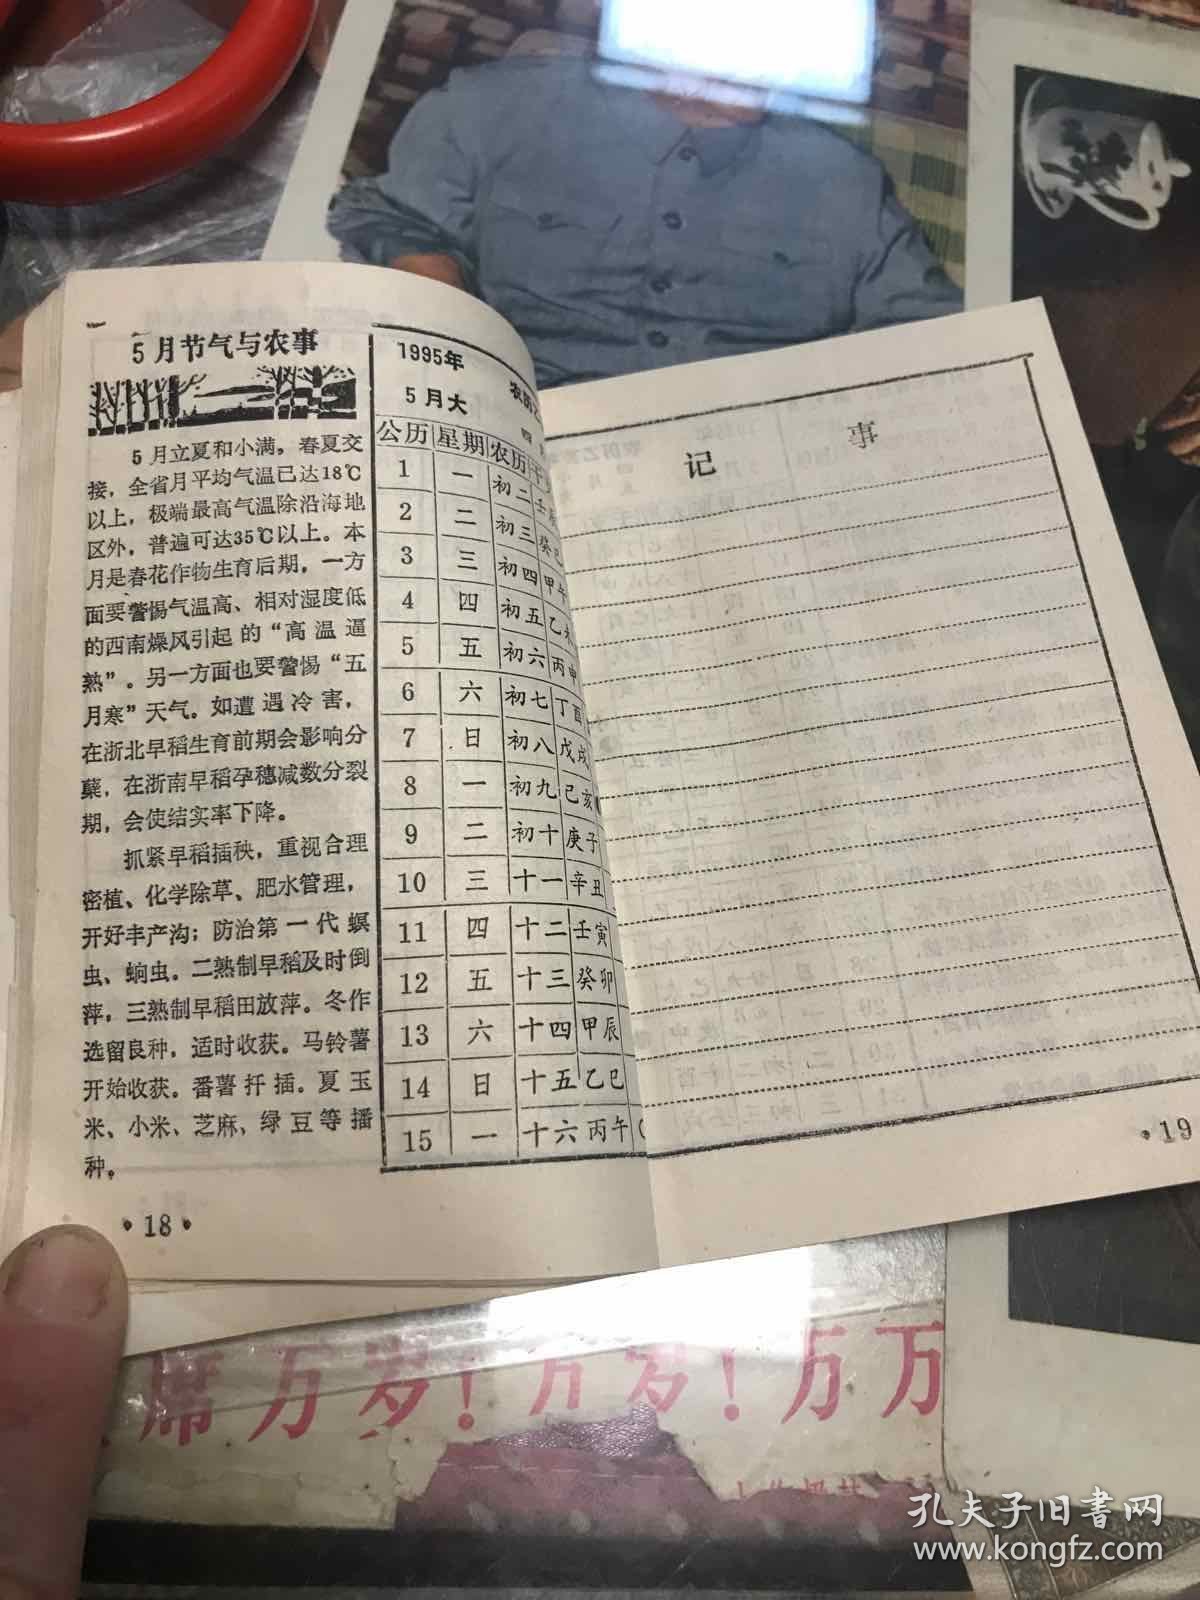 5月节气与农事
5月立夏和小满。春夏交
接，全省月平均气温已达18℃
以上，极端最高气温除沿海地
区外，普遍可达35℃以上。本
月是春花作物生育后期，一方
面要警惕气温高、相对湿度低
的西南燥风引起的“高温逼
熟”。另一方面也要警惕“五
月寒”天气。如遭遇冷害，
在浙北早稻生育前期会影响分
蘖，在浙南早稻孕穗减数分裂
期，会使结实率下降。
抓紧早稻插秧，重视合理
密植、化学除草、肥水管理，
开好丰产沟；防治第一代螟
虫、蚼虫。二熟制早稻及时倒
萍，三熟制早稻田放萍。冬作
选留良种，适时收获。马铃薯
开始收获。番薯扦插。夏玉
米、小米、芝麻、绿豆等播
种。
·18·
1995年
5月大
农历乙
四
公历 星期 农历 干
1 一 初二 壬辰
2 二 初三 癸巳
3 三 初四 甲午
4 四 初五 乙未
5 五 初六 丙申
6 六 初七 丁酉
7 日 初八 戊戌
8 一 初九 己亥
9 二 初十 庚子
10 三 十一 辛丑
11 四 十二 壬寅
12 五 十三 癸卯
13 六 十四 甲辰
14 日 十五 乙巳
15 一 十六 丙午
记事
·19
席万岁！万岁！万万
孔夫子旧书网
www.kongfz.com